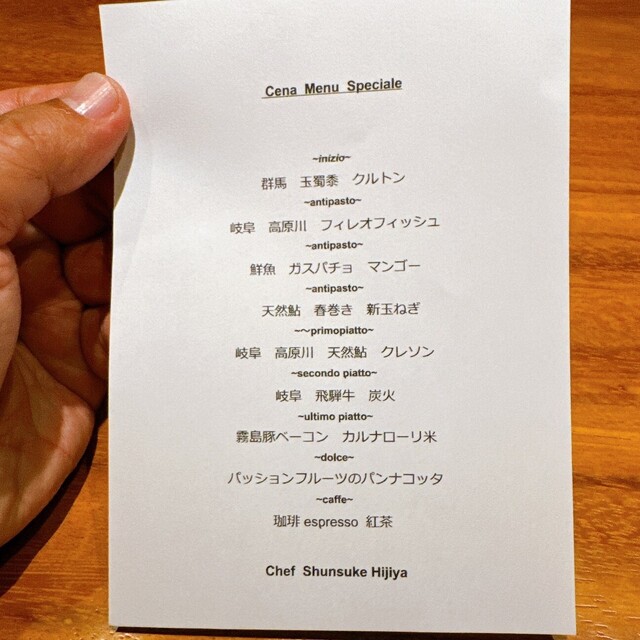 Cena Menu Speciale
~inizio~
群馬　玉蜀黍　クルトン
~antipasto~
岐阜　高原川　フィレオフィッシュ
~antipasto~
鮮魚　ガスパチョ　マンゴー
~antipasto~
天然鮎　春巻き　新玉ねぎ
~~primopiatto~
岐阜　高原川　天然鮎　クレソン
~secondo piatto~
岐阜　飛騨牛　炭火
~ultimo piatto~
霧島豚ベーコン　カルナローリ米
~dolce~
パッションフルーツのパンナコッタ
~caffe~
珈琲 espresso 紅茶
Chef Shunsuke Hijiya